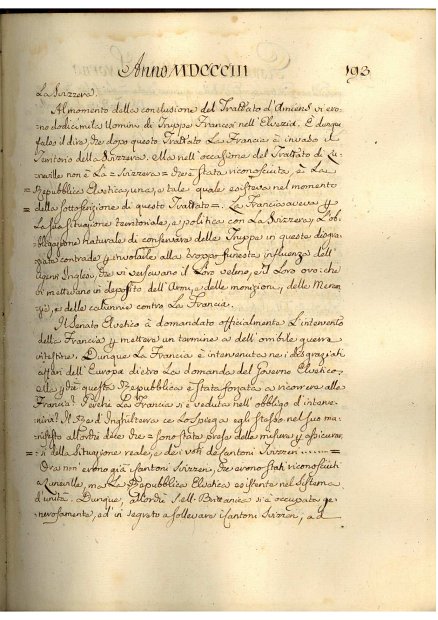 Anno MDCCCIII 193
La Svizzera.
Al momento della conclusione del Trattato d'Amiens vi era-
no dodici mila Uomini di Truppe Francesi nell'Elvezia. E dunque
falso il dire che dopo questo Trattato La Francia è invaso il
Territorio della Svizzera. Ella nell'occasione del Trattato di Lu-
neville non è La = Svizzera = che è stata riconosciuta, è La =
= Repubblica Elvetica, una, e tale quale esisteva nel momento
della sottoscrizione di questo Trattato =. La Francia aveva per
La sua situazione territoriale, e politica con La Svizzera, L'ob-
bligazione naturale di conservare delle Truppe in queste disgra-
ziate contrade per involarle alla troppo funesta influenza dell'
agenti Inglesi, che vi versavano il Loro veleno, ed il Loro oro: che
vi mettevano in deposito dell'Armi, e delle monizioni, delle Menzo-
gne, e delle calunnie contro La Francia.
Il Senato Elvetico à domandato officialmente L'intervento
della Francia per mettere un termine a dell'orribile guerra
intestine. Dunque La Francia è intervenuta ne' disgraziati
affari dell'Europa dietro La domanda del Governo Elvetico:
ella, che questa Repubblica è stata forzata a ricorrere alla
Francia? Perchè La Francia si è veduta nell'obbligo d'interve-
nirvi? Il Re d'Inghilterra ce Lo spiega egli stesso nel suo ma-
nifesto allorchè dice che = sono state prese delle misure per assicurar-
= si della situazione reale, e de' voti de' Cantoni Svizzeri
Ora non erono già i Cantoni Svizzeri, che erono stati riconosciuti
a Luneville, ma La Repubblica Elvetica esistente nel sistema
d'unità. Dunque, allorchè S. M. Brittanica si è occupata ge-
nerosamente, ed in segreto a sollevare i Cantoni Svizzeri, ad